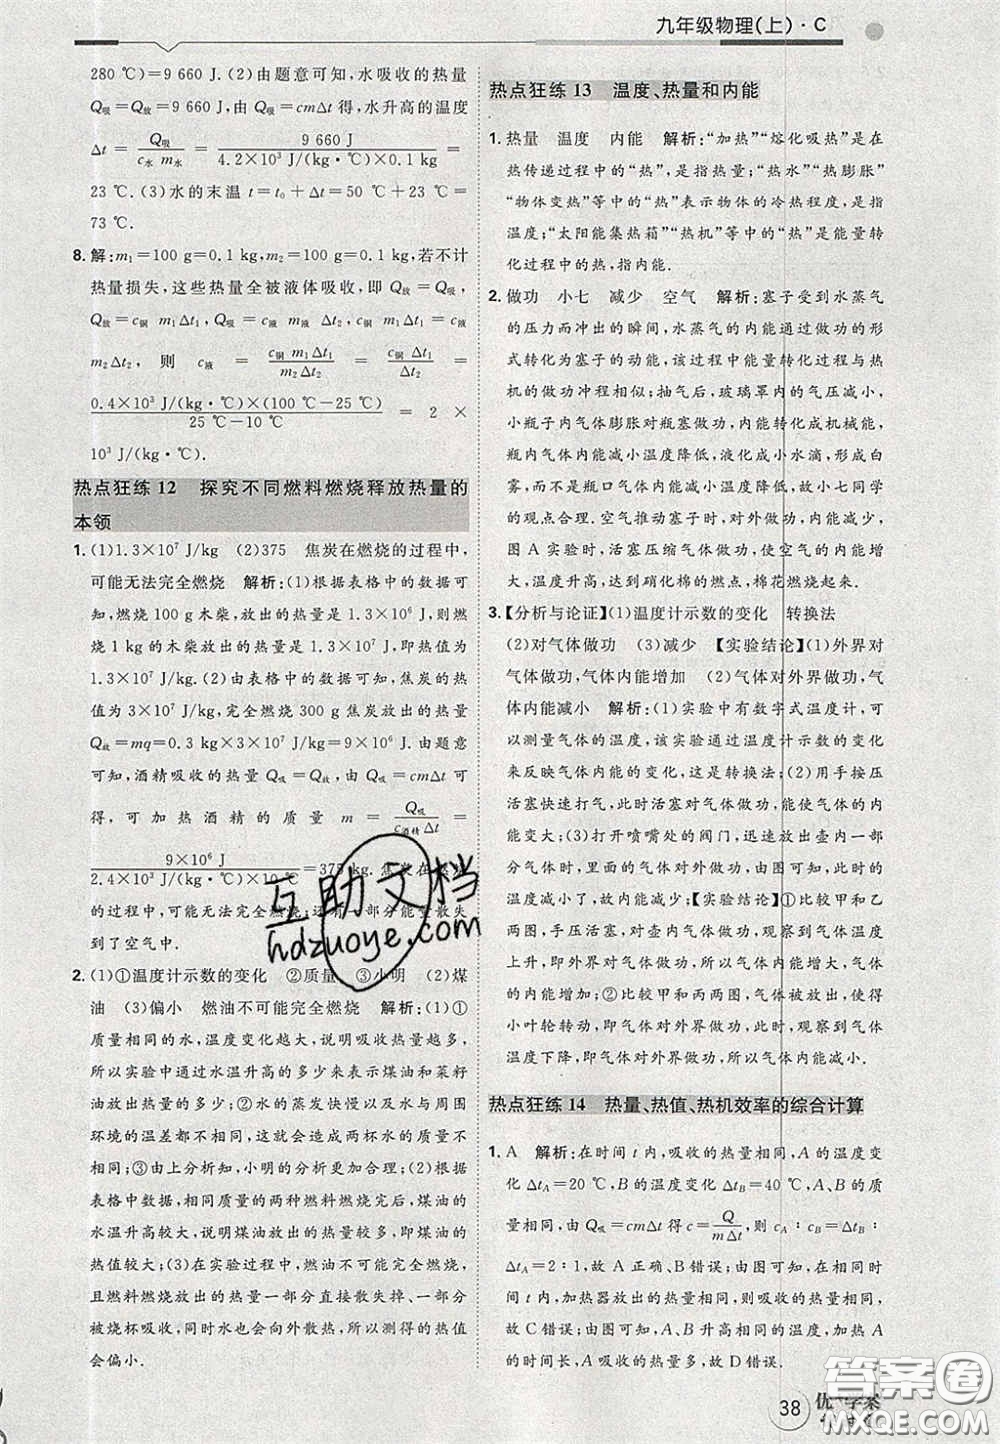 九年级物理(上)·C
280 ℃)=9 660 J. (2)由题意可知,水吸收的热量
Q吸=Q放=9 660 J,由 Q吸=cmΔt 得,水升高的温度
Δt = Q吸/(c水 m水) = 9 660 J/(4.2×10³ J/(kg·℃)×0.1 kg) =
23 ℃. (3)水的末温 t=t₀+Δt=50 ℃+23 ℃=
73 ℃.
8. 解:m₁=100 g=0.1 kg,m₂=100 g=0.1 kg,若不计
热量损失,这些热量全被液体吸收,即 Q放=Q吸,
Q放=c铜 m₁Δt₁,Q吸=c液 m₂Δt₂,c铜 m₁Δt₁=c液
m₂Δt₂, 则 c液 = c铜 m₁Δt₁/(m₂Δt₂) =
0.4×10³ J/(kg·℃)×(100 ℃-25 ℃)/(25 ℃-10 ℃) = 2 ×
10³ J/(kg·℃).
热点狂练 12 探究不同燃料燃烧释放热量的
本领
1. (1)1.3×10⁷ J/kg (2)375 焦炭在燃烧的过程中,
可能无法完全燃烧 解析:(1)根据表格中的数据可
知,燃烧 100 g 木柴,放出的热量是 1.3×10⁶ J,则燃
烧 1 kg 的木柴放出的热量为 1.3×10⁷ J,即热值为
1.3×10⁷ J/kg. (2)由表格中的数据可知,焦炭的热
值为 3×10⁷ J/kg,完全燃烧 300 g 焦炭放出的热量
Q放=mq=0.3 kg×3×10⁷ J/kg=9×10⁶ J. 由题意
可知,酒精吸收的热量 Q吸=Q放,由 Q吸=cmΔt 可
得, 可加热酒精的质量 m = Q吸/(c酒精 Δt) =
9×10⁶ J/(2.4×10³ J/(kg·℃)×10 ℃)=375 kg. 焦炭在燃
烧的过程中,可能无法完全燃烧,还有一部分能量散失
到了空气中.
2. (1)①温度计示数的变化 ②质量 ③小明 (2)煤
油 (3)偏小 燃油不可能完全燃烧 解析:(1)①
质量相同的水,温度变化越大,说明吸收热量越多,
所以实验中通过水温升高的多少来表示煤油和菜籽
油放出热量的多少;②水的蒸发快慢与水与周围
环境的温差有很大关系,水温越高,蒸发越快,与周围
环境的温差都不相同,这会造成两杯水的散热也
不同;③由上分析知,小明的分析更加合理;(2)根据
表格中数据,相同质量的两种燃料燃烧完后,煤油的
水温升高较大,说明煤油放出热量多,所以煤油的热
值较大;(3)在实验过程中,燃油不可能完全燃烧,
且燃料燃烧放出的热量一部分直接散失掉、一部分
被烧杯吸收,同时水也会向外散热,所以测得的热值
会偏小.
热点狂练 13 温度、热量和内能
1. 热量 温度 内能 解析:“加热”“熔化吸热”是在
热传递过程中的“热”,是指热量;“热水”“热膨胀”
“物体变热”等中的“热”表示物体的冷热程度,是指
温度;“太阳能集热箱”“热机”等中的“热”是能量转
化过程中的热,指内能.
2. 做功 小七 减少 空气 解析:塞子受到水蒸气
的压力而冲出的瞬间,水蒸气的内能通过做功的形
式转化为塞子的动能,该过程中能量转化过程与热
机的做功冲程相似;抽气后,玻璃罩内的气压减小,
小瓶子内气体膨胀对瓶塞做功,内能转化成机械能,
内能减少,水蒸气温度降低,液化成小水滴,形成白
雾,而不是瓶口气体内能增加温度降低,故小七同学
的观点合理. 空气推动塞子时,对外做功,内能减少,
图 A 实验时,活塞压缩气体做功,使空气的内能增
大,温度升高,达到硝化棉的燃点,棉花燃烧起来.
3. 【分析与论证】(1)温度计示数的变化 转换法
(2)对气体做功 (3)减少 【实验结论】(1)外界对
气体做功,气体内能增加 (2)气体对外界做功,气体
内能减小 解析:(1)实验中有数字式温度计,可
以测量气体的温度,该实验通过温度计示数的变化
来反映气体内能的变化,这是转换法;(2)用手按压
活塞快速打气,此时活塞对气体做功,所以气体的内能
变大;(3)打开喷嘴处的阀门,迅速放出壶内一部
分气体时,里面的气体对外做功,气体对外做功,气体的
温度减小,故内能减少.【实验结论】①比较甲和乙
两图,活塞对气体做功,对壶内气体做功,观察到气体温度
上升,即外界对气体做功,观察到气体温度上升,所以气体
内能增加;②比较甲和丙两图,气体被放出,使得
小叶轮转动,即气体对外界做功,此时,观察到气体
温度下降,即气体对外界做功,所以气体内能减小.
热点狂练 14 热量、热值、热机效率的综合计算
1. A 解析:在时间 t 内,吸收的热量相同,A 的温度变
化 Δt_A=20 ℃,B 的温度变化 Δt_B=40 ℃,A、B 的质
量相同,由 Q吸=cmΔt 得 c=Q/(mΔt),则 c_A∶c_B=Δt_B∶
Δt_A=2∶1,故 A 正确、B 错误;由图可知,在时间 t
内,加热器放出的热量相同,则吸收的热量相同,
故 C 错误;由图可知,A、B 升高相同的温度,加热 A
的时间长,A 吸收的热量多,故 D 错误.
互助文档
hdzuoye.com
38
优+学案
答案圈
MXQE.COM